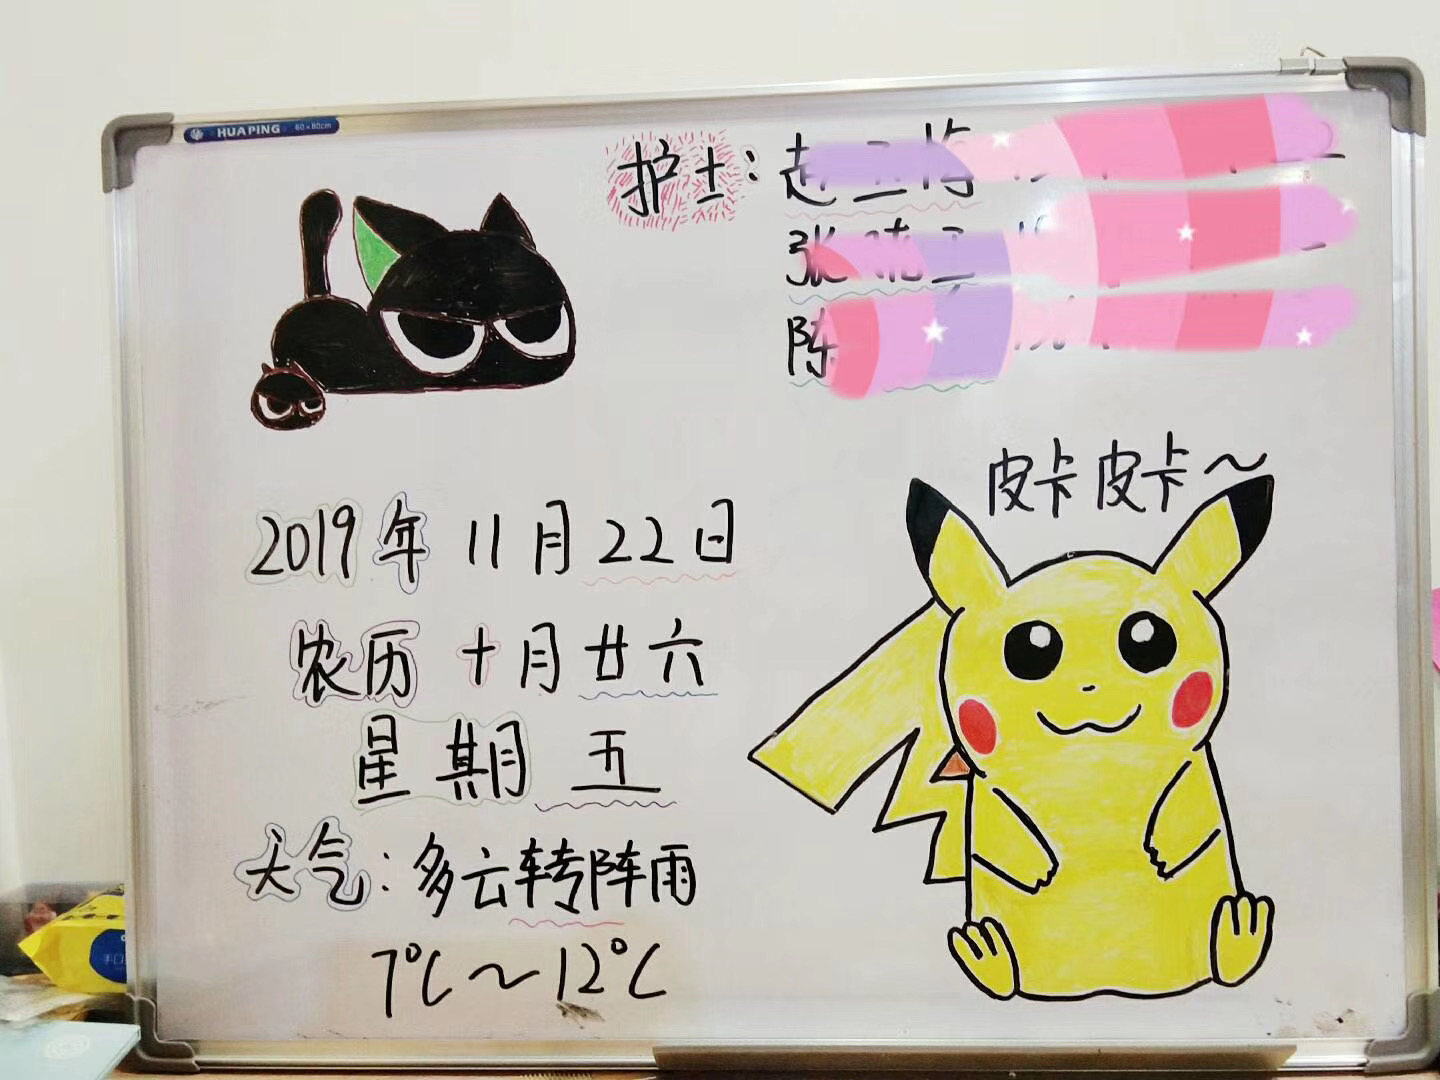 HUAPING 60×80cm
护士: 赵
张
陈
皮卡皮卡~
2019年 11月22日
农历 十月廿六
星期 五
天气: 多云转阵雨
7℃~12℃